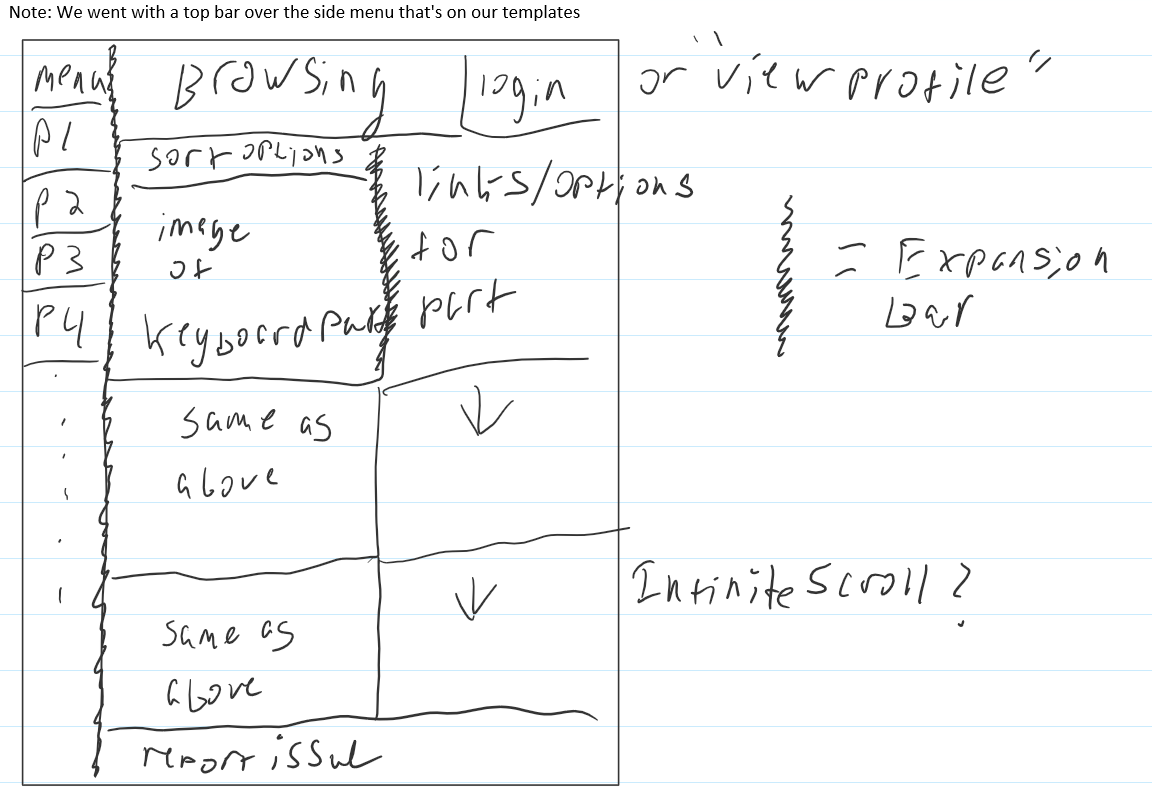 Note: We went with a top bar over the side menu that's on our templates
menu
Browsing
login
or "view profile"
P1
P2
P3
P4
sort options
image
of
keyboard part
links/options
for
part
= Expansion
bar
same as
above
same as
above
Infinite Scroll?
report issue